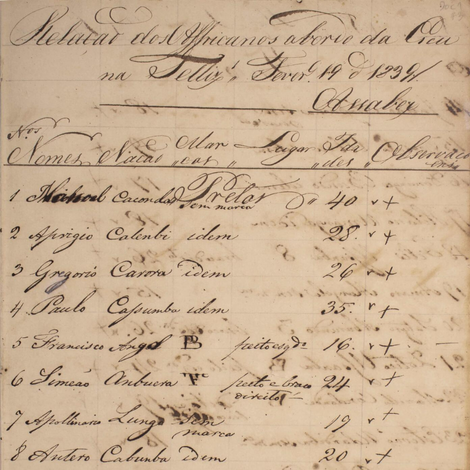 Relação dos Affricanos abordo da Escu
na Felliz, Fever.º 14 d 1839
Assaber
Nos
Nomes Nação Mar cas Lugar Ida des Observaco ens
1 Manoel Caconda Prêtos sem marca D 40 v +
2 Aprigio Calenbi idem 28. v +
3 Gregorio Carora idem 26 v +
4 Paulo Cassumba idem 35. v +
5 Francisco Angol B peito esqdº 16. v + —
6 Simeão Anbuera peito e braco direito 24 v +
7 Apollinario Lungo sem marca 19 v +
8 Antero Cabunba idem 20 v +